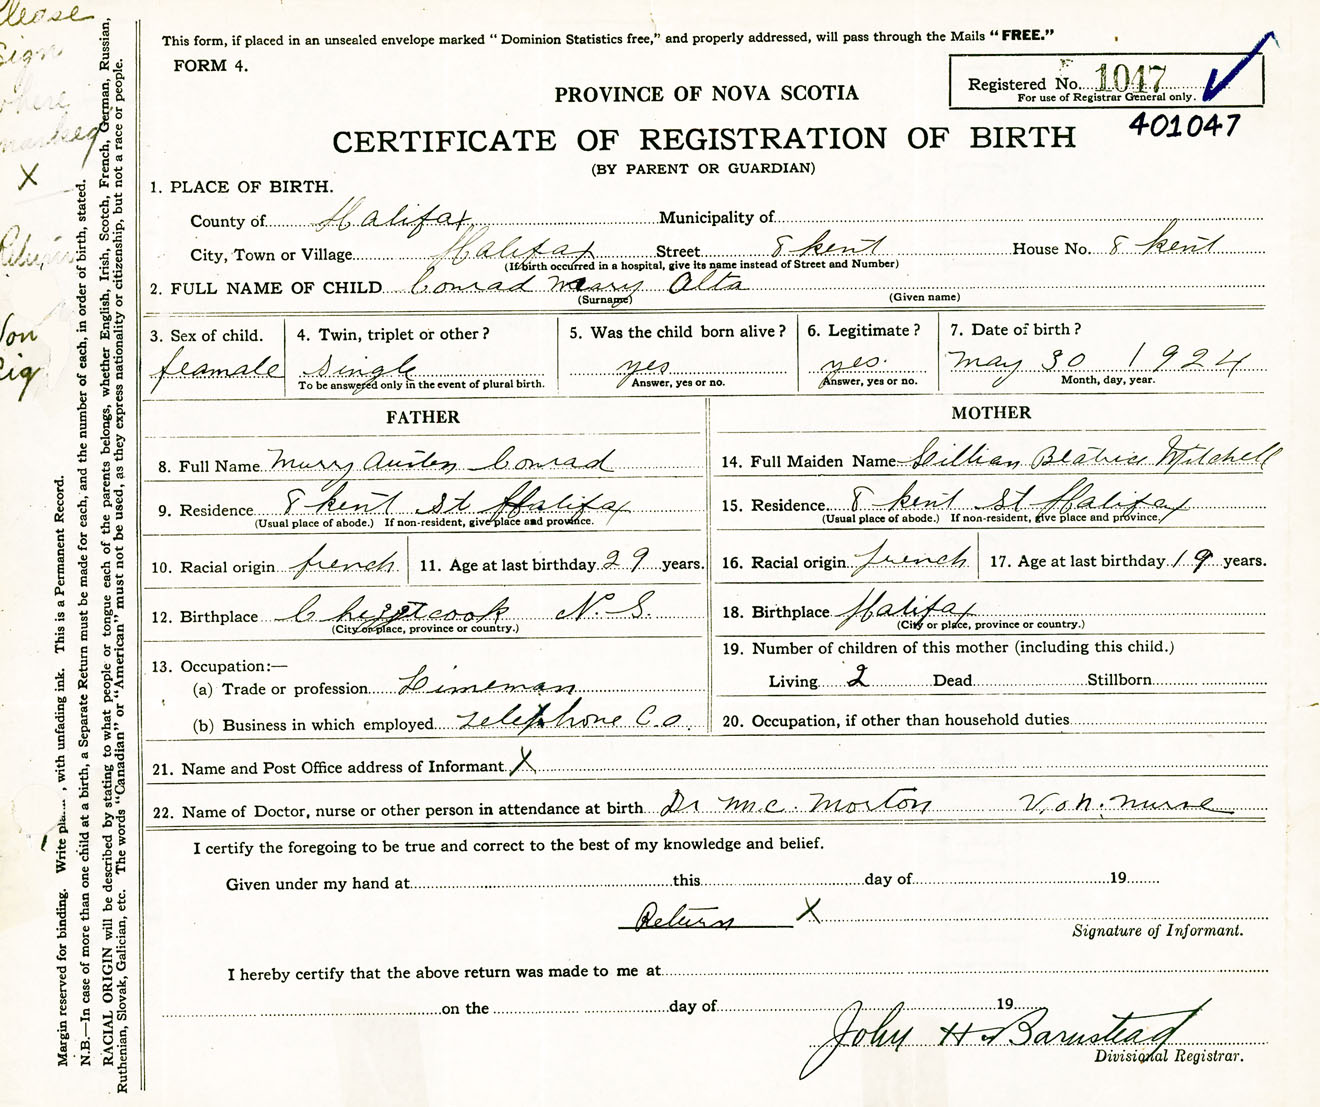 This form, if placed in an unsealed envelope marked " Dominion Statistics free," and properly addressed, will pass through the Mails "FREE."
FORM 4.
Registered No. 1047
For use of Registrar General only.
401047
PROVINCE OF NOVA SCOTIA
CERTIFICATE OF REGISTRATION OF BIRTH
(BY PARENT OR GUARDIAN)
1. PLACE OF BIRTH.
County of Halifax Municipality of
City, Town or Village Halifax Street 8 kent House No. 8 kent
(If birth occurred in a hospital, give its name instead of Street and Number)
2. FULL NAME OF CHILD Conrad Meary Alta
(Surname) (Given name)
3. Sex of child. 4. Twin, triplet or other? 5. Was the child born alive? 6. Legitimate? 7. Date of birth?
feamale single yes yes. May 30 1924
To be answered only in the event of plural birth. Answer, yes or no. Answer, yes or no. Month, day, year.
FATHER MOTHER
8. Full Name Murry Austen Conrad 14. Full Maiden Name Lillian Beatrice Mitchell
9. Residence 8 kent St Halifax 15. Residence 8 kent St Halifax
(Usual place of abode.) If non-resident, give place and province. (Usual place of abode.) If non-resident, give place and province.
10. Racial origin french 11. Age at last birthday 29 years. 16. Racial origin french 17. Age at last birthday 19 years.
12. Birthplace Chezetcook N.S. 18. Birthplace Halifax
(City or place, province or country.) (City or place, province or country.)
13. Occupation:— 19. Number of children of this mother (including this child.)
(a) Trade or profession Lineman Living 2 Dead Stillborn
(b) Business in which employed Telephone Co 20. Occupation, if other than household duties
21. Name and Post Office address of Informant X
22. Name of Doctor, nurse or other person in attendance at birth Dr Mc. Morton V.O.N. nurse
I certify the foregoing to be true and correct to the best of my knowledge and belief.
Given under my hand at this day of 19
Return X
Signature of Informant.
I hereby certify that the above return was made to me at
on the day of 19
John H Barnstead
Divisional Registrar.
Margin reserved for binding. Write , with unfading ink. This is a Permanent Record.
N.B.—In case of more than one child at a birth, a Separate Return must be made for each, and the number of each, in order of birth, stated.
RACIAL ORIGIN will be described by stating to what people or tongue each of the parents belongs, whether English, Irish, Scotch, French, German, Russian,
Ruthenian, Slovak, Galician, etc. The words "Canadian" or "American" must not be used, as they express nationality or citizenship, but not a race or people.
Please
Sign
where
marked
X